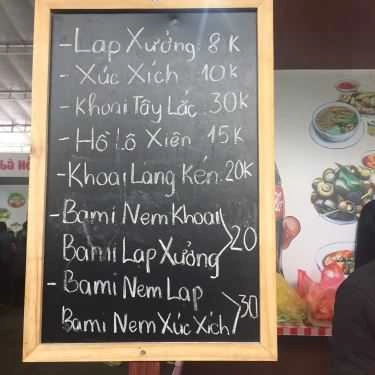 - Lap Xưởng 8K
- Xúc Xích 10K
- Khoai Tây Lắc 30K
- Hồ Lô Xiên 15K
- Khoai Lang Kén 20K
- Bami Nem Khoai
Bami Lap Xưởng 20
- Bami Nem Lap
Bami Nem Xúc Xích 30